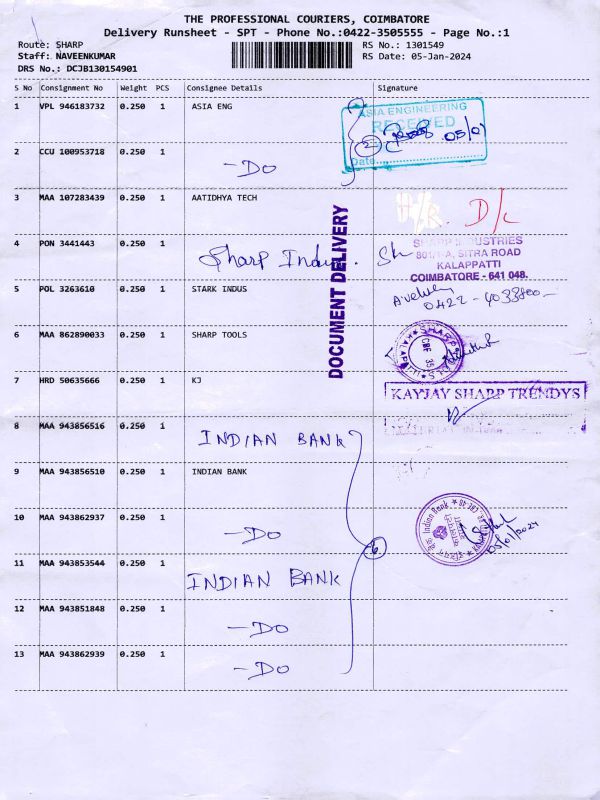 THE PROFESSIONAL COURIERS, COIMBATORE
Delivery Runsheet - SPT - Phone No.:0422-3505555 - Page No.:1
Route: SHARP
Staff: NAVEENKUMAR
DRS No.: DCJB130154901
RS No.: 1301549
RS Date: 05-Jan-2024
S No Consignment No Weight PCS Consignee Details Signature
1 VPL 946183732 0.250 1 ASIA ENG
ASIA ENGINEERING
RECEIVED
2 05/01
Date
2 CCU 100953718 0.250 1 -DO
3 MAA 107283439 0.250 1 AATIDHYA TECH
D/L
DOCUMENT DELIVERY
4 PON 3441443 0.250 1 Sharp Indus.
SHARP INDUSTRIES
SITRA ROAD
KALAPPATTI
COIMBATORE - 641 048.
5 POL 3263610 0.250 1 STARK INDUS
0422-4033800
6 MAA 862890033 0.250 1 SHARP TOOLS
SHARP
KALAPATTI
CBE 35
7 HRD 50635666 0.250 1 KJ
KAYJAY SHARP TRENDYS
8 MAA 943856516 0.250 1 INDIAN BANK
9 MAA 943856510 0.250 1 INDIAN BANK
10 MAA 943862937 0.250 1 -DO
6
Indian Bank
05/01/2024
11 MAA 943853544 0.250 1 INDIAN BANK
12 MAA 943851848 0.250 1 -DO
13 MAA 943862939 0.250 1 -DO